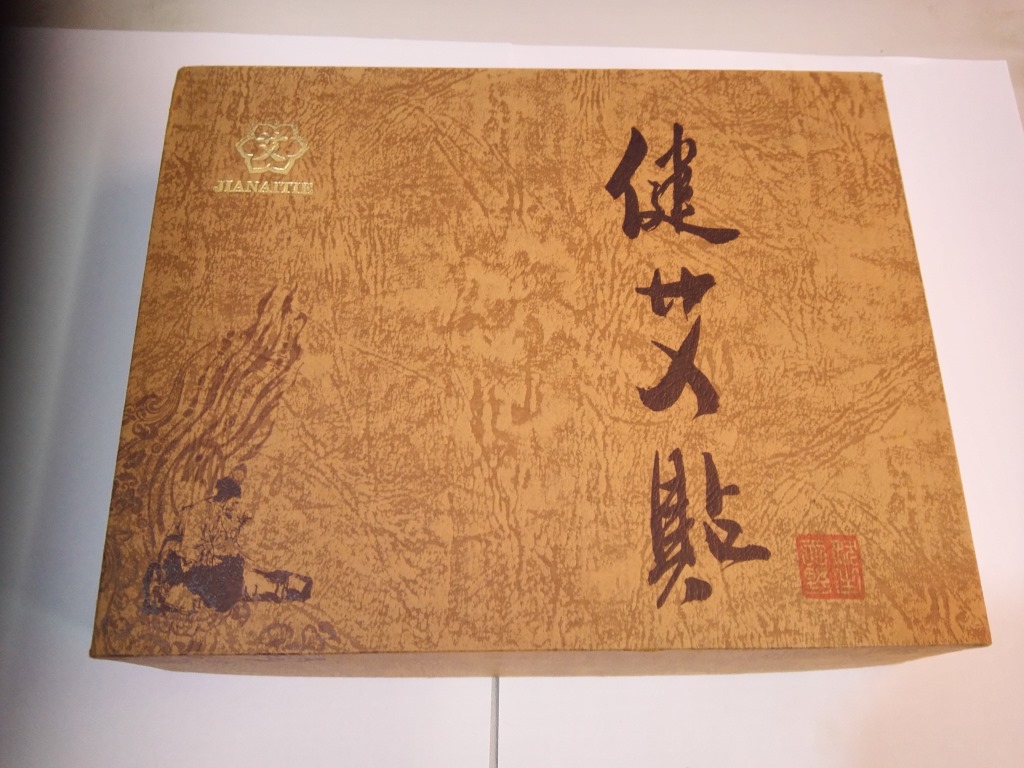 JIANAITIE
健艾貼